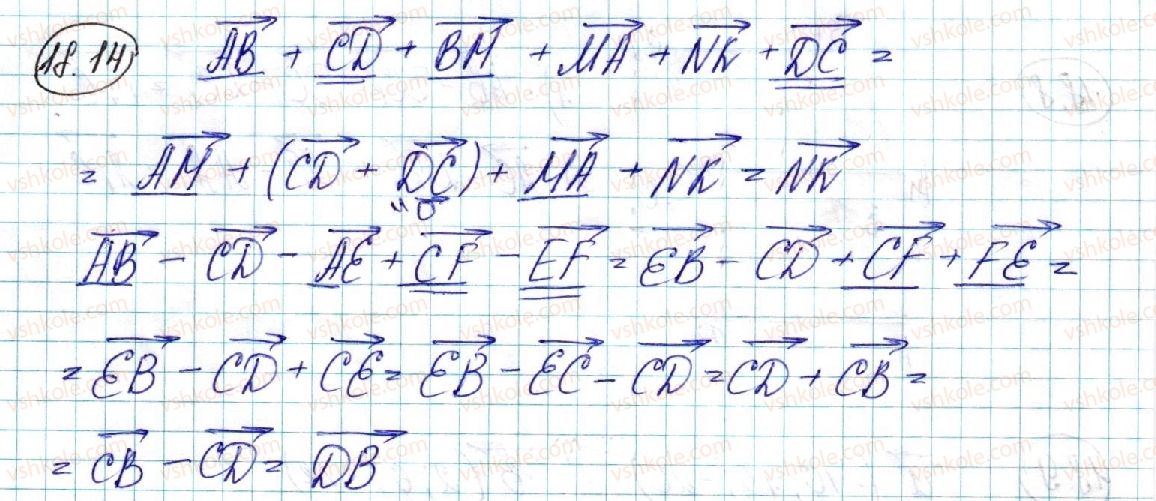 18.14 $\overrightarrow{AB} + \overrightarrow{CD} + \overrightarrow{BM} + \overrightarrow{MA} + \overrightarrow{NK} + \overrightarrow{DC} =$
$= \overrightarrow{AM} + (\overrightarrow{CD} + \overrightarrow{DC}) + \overrightarrow{MA} + \overrightarrow{NK} = \overrightarrow{NK}$
"$\vec{0}$
$\overrightarrow{AB} - \overrightarrow{CD} - \overrightarrow{AE} + \overrightarrow{CF} - \overrightarrow{EF} = \overrightarrow{EB} - \overrightarrow{CD} + \overrightarrow{CF} + \overrightarrow{FE} =$
$= \overrightarrow{EB} - \overrightarrow{CD} + \overrightarrow{CE} = \overrightarrow{EB} - \overrightarrow{EC} - \overrightarrow{CD} = \overrightarrow{CD} + \overrightarrow{CB} =$
$= \overrightarrow{CB} - \overrightarrow{CD} = \overrightarrow{DB}$
vshkole.com